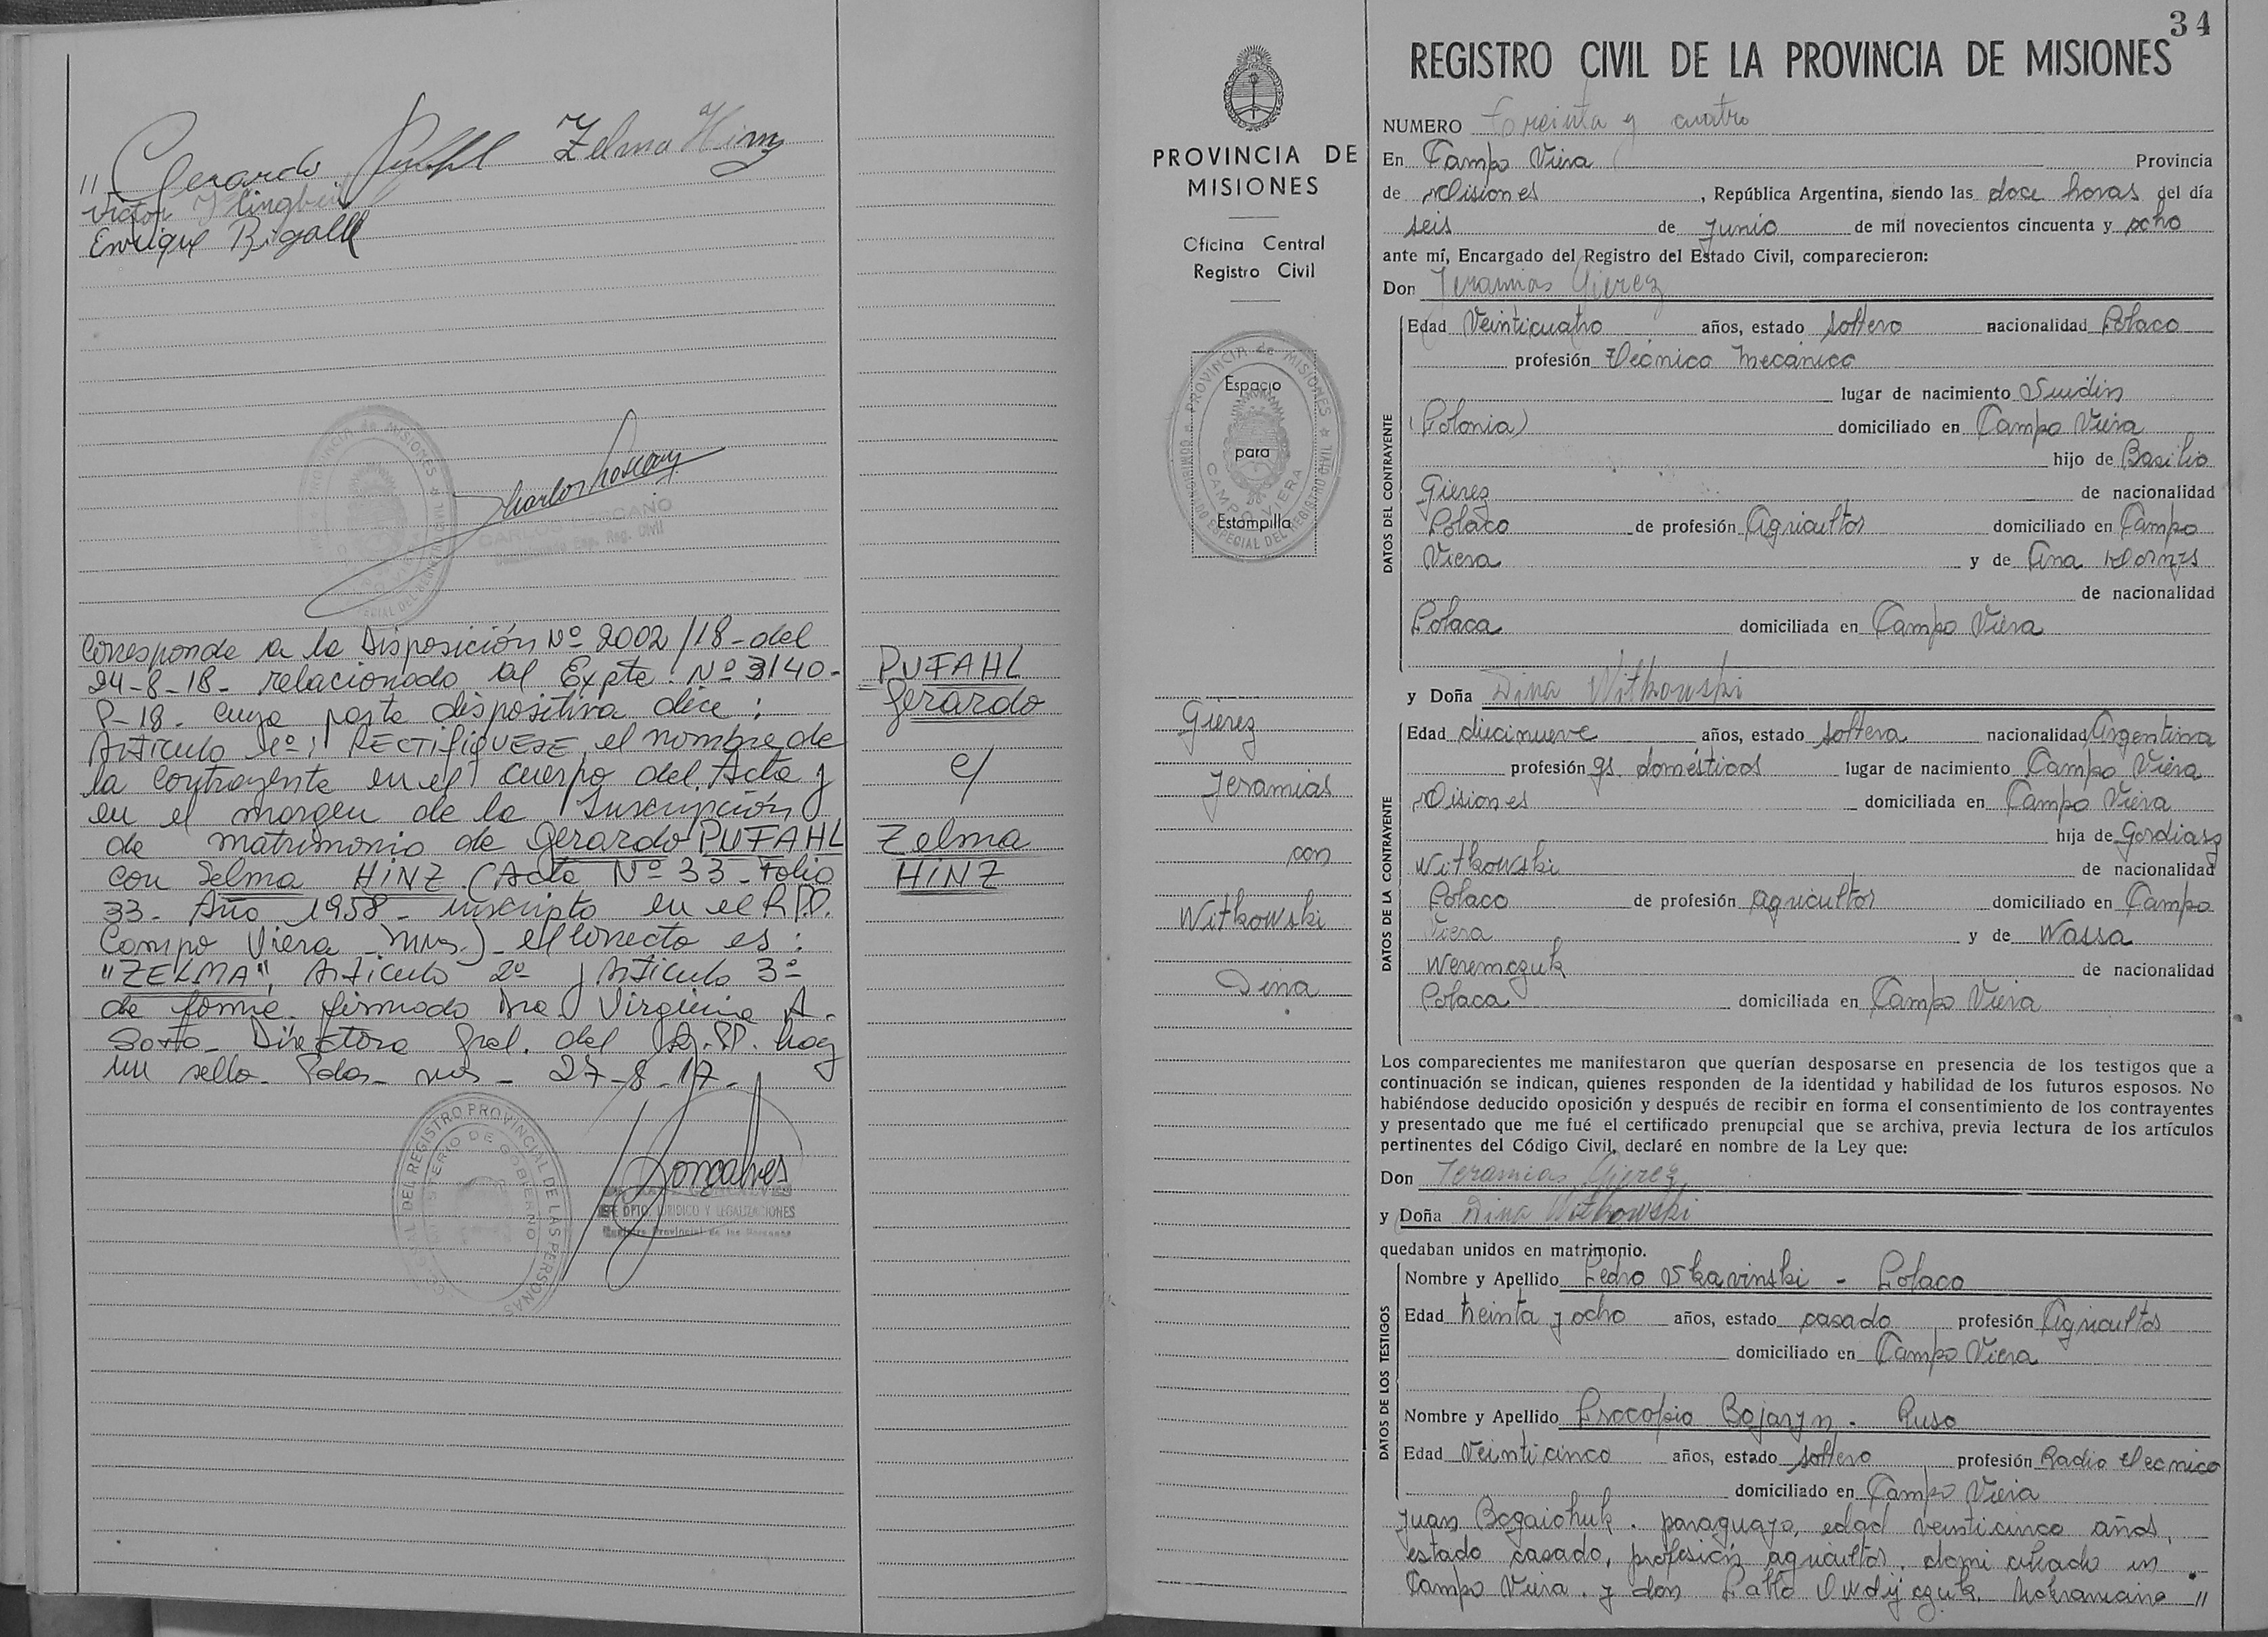 // Gerardo Pufahl Zelma Hinz
Victor Klingbeil
Enrique Rigalli
Carlos Loscano
CARLOS LOSCANO
Esp. Reg. Civil
Corresponde a la Disposición Nº 2002/18-del
24-8-18- relacionado al Expte. Nº 3140-
P-18. cuya parte dispositiva dice:
Artículo 1º: RECTIFIQUESE el nombre de
la contrayente en el cuerpo del Acta y
en el margen de la Inscripción
de matrimonio de Gerardo PUFAHL
con Selma HINZ (Acta Nº 33-Folio
33- Año 1958- inscripto en el R.P.P.
Campo Viera - Mnes.) el correcto es:
"ZELMA", Artículo 2º y Artículo 3º
de forma. firmado Dra Virginia A.
Directora Gral. del R.P.P. hay
un sello- Pdas- Mnes- 27-8-17-
Goncalves
GONCALVES
DPTO. JURIDICO Y LEGALIZACIONES
Registro Provincial de las Personas
DEL REGISTRO PROVINCIAL DE LAS PERSONAS
MINISTERIO DE GOBIERNO
PUFAHL
Gerardo
c/
Zelma
HINZ
PROVINCIA DE
MISIONES
Oficina Central
Registro Civil
PROVINCIA de MISIONES
Espacio
para
CAMPO VIERA
Estampilla
ESPECIAL DEL REGISTRO CIVIL
Gierez
Jeramias
con
Witkowski
Dina
34
REGISTRO CIVIL DE LA PROVINCIA DE MISIONES
NUMERO treinta y cuatro
En Campo Viera Provincia
de Misiones, República Argentina, siendo las doce horas del día
seis de Junio de mil novecientos cincuenta y ocho
ante mí, Encargado del Registro del Estado Civil, comparecieron:
Don Jeramias Gierez
DATOS DEL CONTRAYENTE
Edad Veinticuatro años, estado soltero nacionalidad Polaco
profesión Técnico Mecánico
lugar de nacimiento
(Polonia) domiciliado en Campo Viera
hijo de Basilio
Gierez de nacionalidad
Polaco de profesión Agricultor domiciliado en Campo
Viera y de Ana
de nacionalidad
Polaca domiciliada en Campo Viera
y Doña Dina Witkowski
DATOS DE LA CONTRAYENTE
Edad diecinueve años, estado soltera nacionalidad Argentina
profesión qs. domésticos lugar de nacimiento Campo Viera
Misiones domiciliada en Campo Viera
hija de Gordiasz
Witkowski de nacionalidad
Polaco de profesión agricultor domiciliado en Campo
Viera y de Wassa
Weremczuk de nacionalidad
Polaca domiciliada en Campo Viera
Los comparecientes me manifestaron que querían desposarse en presencia de los testigos que a
continuación se indican, quienes responden de la identidad y habilidad de los futuros esposos. No
habiéndose deducido oposición y después de recibir en forma el consentimiento de los contrayentes
y presentado que me fué el certificado prenupcial que se archiva, previa lectura de los artículos
pertinentes del Código Civil, declaré en nombre de la Ley que:
Don Jeramias Gierez
y Doña Dina Witkowski
quedaban unidos en matrimonio.
DATOS DE LOS TESTIGOS
Nombre y Apellido Pedro Skavinski - Polaco
Edad treinta y ocho años, estado casado profesión Agricultor
domiciliado en Campo Viera
Nombre y Apellido Procopio Bojaryn. Ruso
Edad Veinticinco años, estado soltero profesión Radio técnico
domiciliado en Campo Viera
Juan Bogaichuk. paraguayo, edad veinticinco años,
estado casado, profesión agricultor. domiciliado en
Campo Viera. y don Pablo //